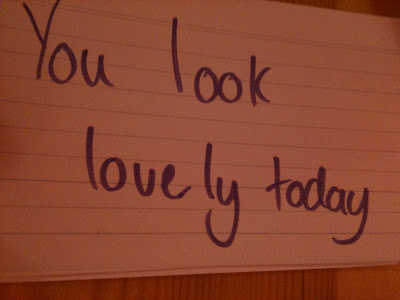 You look
lovely today